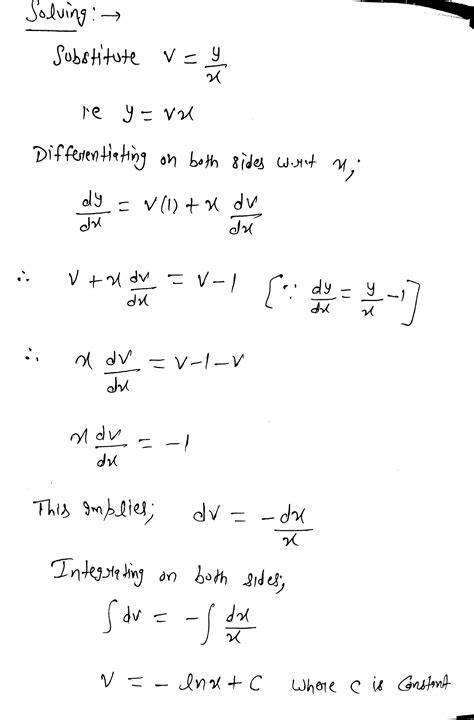 Solving: →
Substitute v = y/x
ie y = vx
Differentiating on both sides w.r.t x,
dy/dx = v(1) + x dv/dx
∴ v + x dv/dx = v-1 [∵ dy/dx = y/x -1]
∴ x dv/dx = v-1-v
x dv/dx = -1
This implies; dv = -dx/x
Integrating on both sides;
∫dv = -∫dx/x
v = - lnx + C where c is Constant